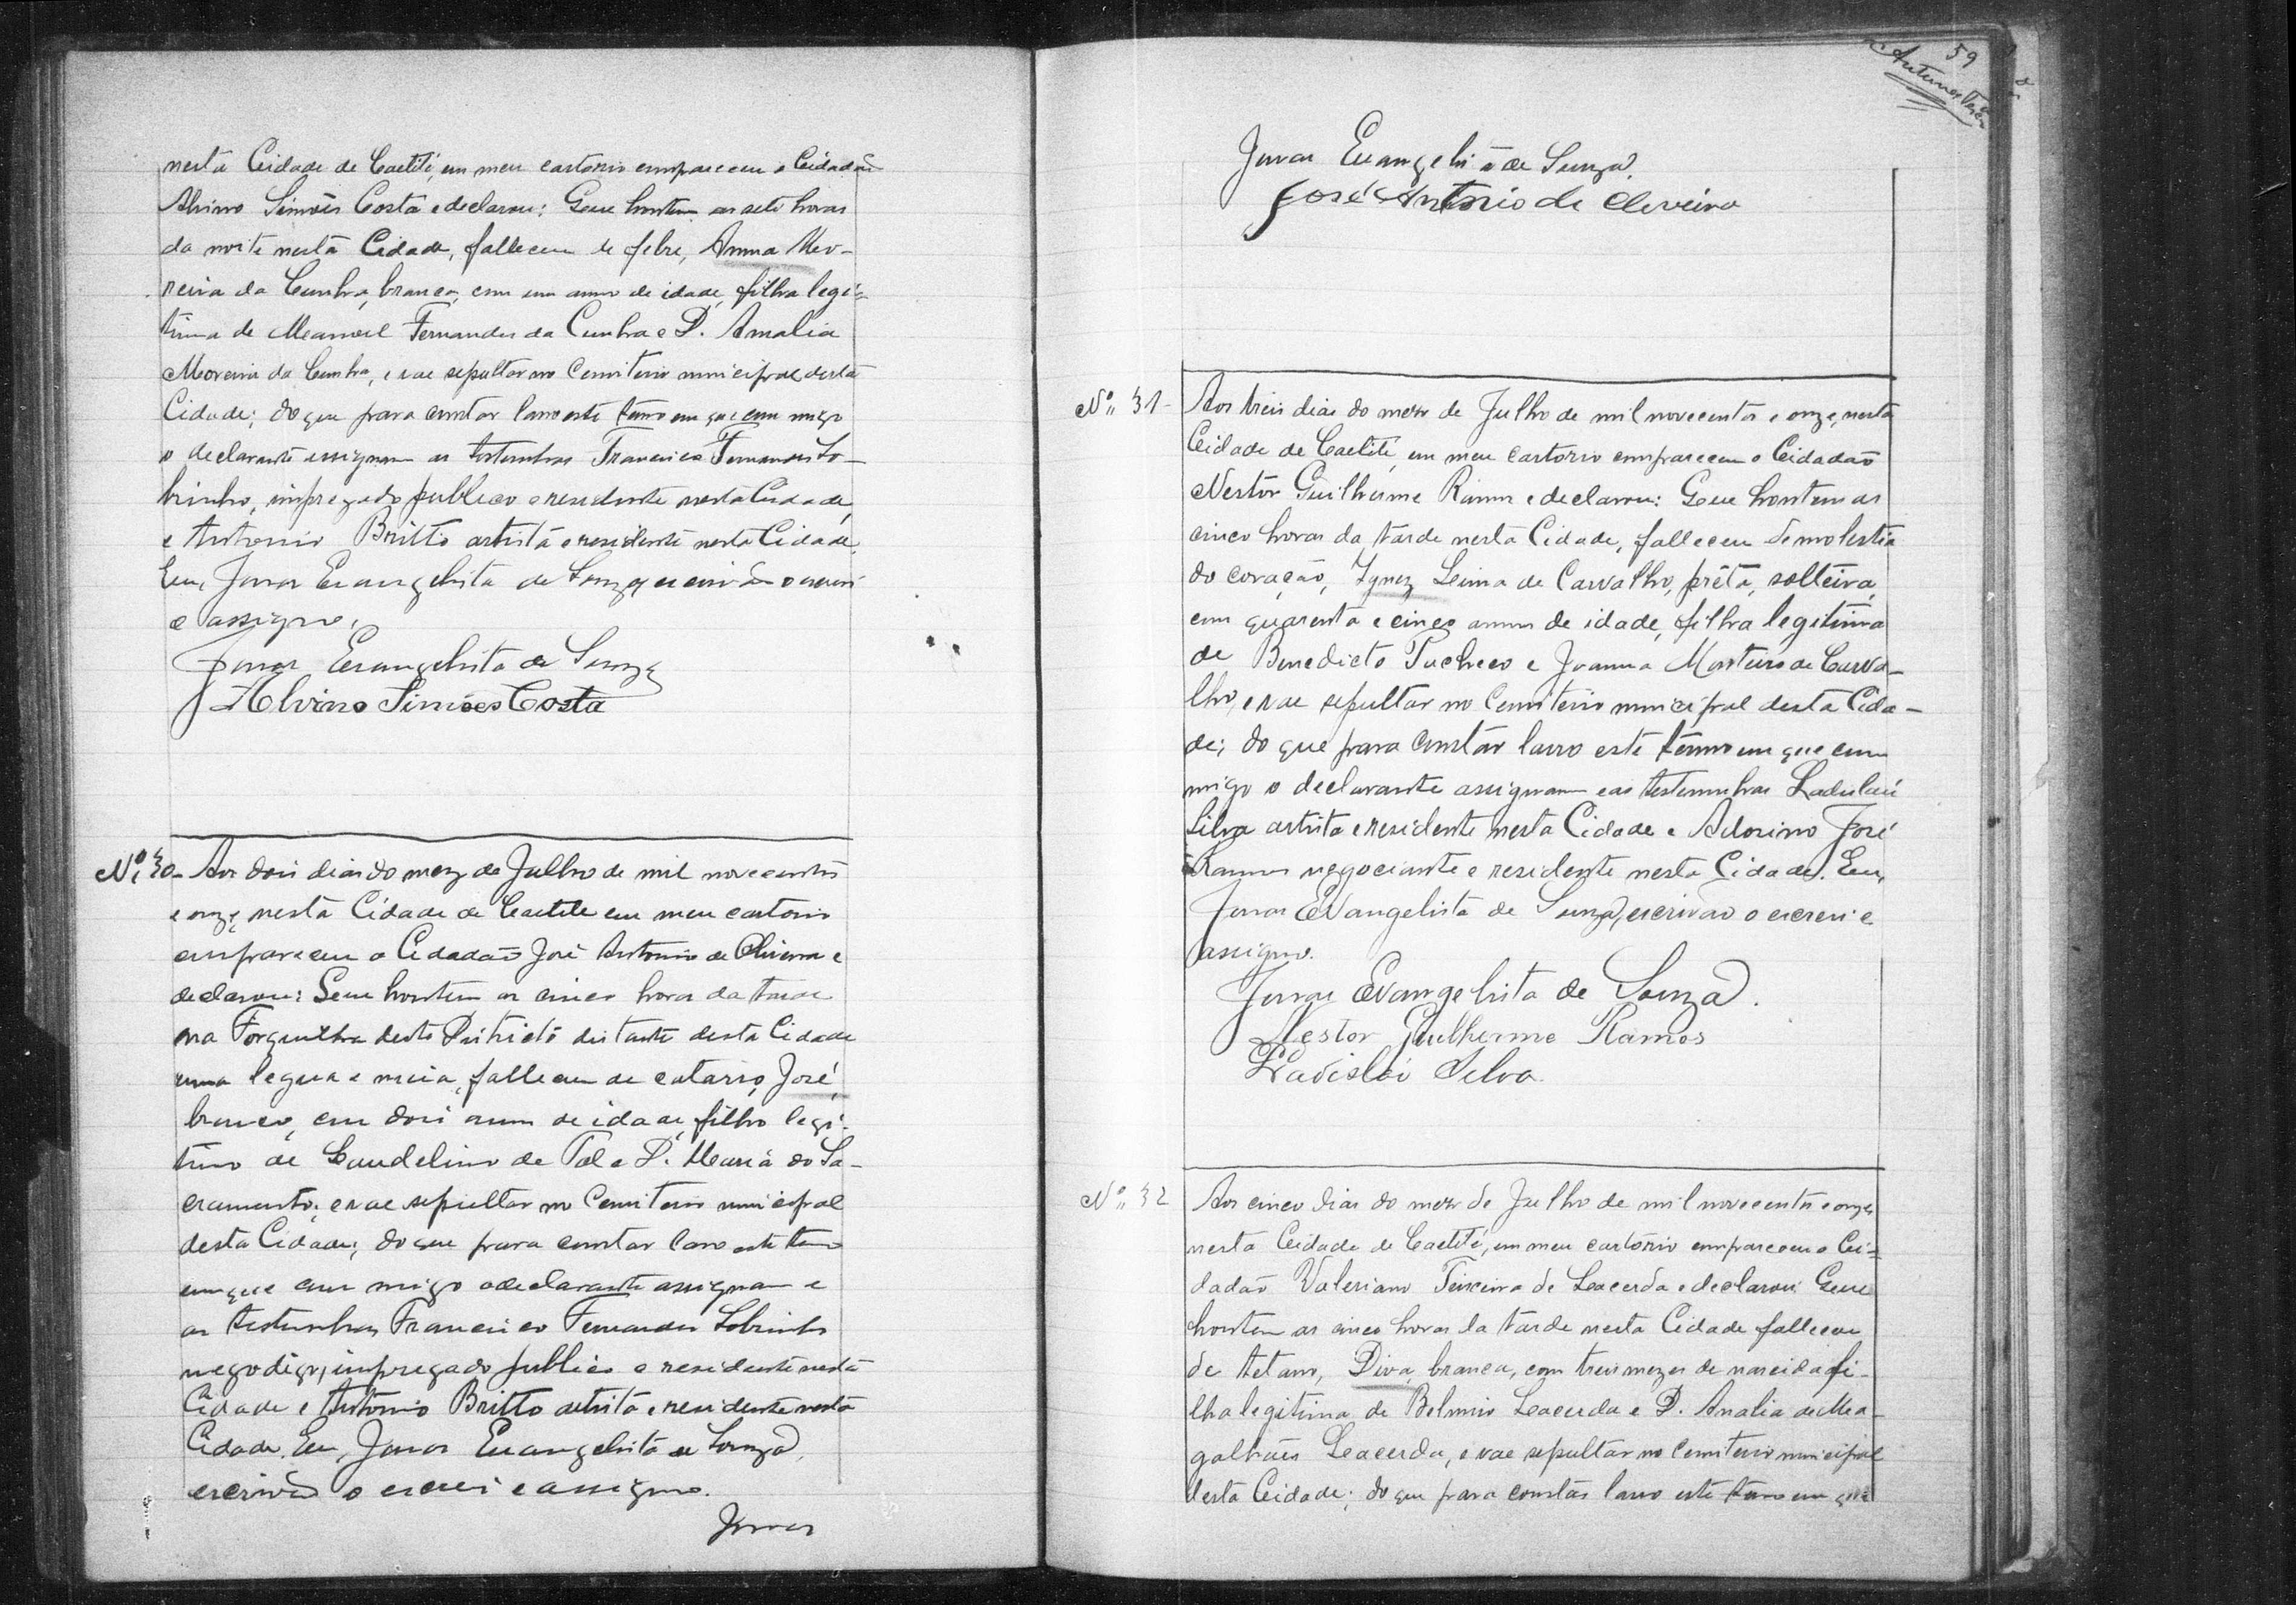 nesta Cidade de Caetité, em meu cartorio compareceu o Cidadão
Alvino Simões Costa e declarou: Que hontem as sete horas
da noite nesta Cidade, falleceu de febre, Anna Mo-
reira da Cunha, branca, com um anno de idade, filha legi-
tima de Manoel Fernandes da Cunha e D. Amalia
Moreira da Cunha, e vae sepultar no Cemiterio municipal desta
Cidade; do que para constar lavro este termo em que com migo
o declarante assignam as testemunhas Francisco Fernandes So-
brinho, impregado publico e residente nesta Cidade,
e Antonio Britto artista e residente nesta Cidade.
Eu, Jonas Evangelista de Souza, escrivão o escrevi
e assigno.
Jonas Evangelista de Souza
Alvino Simões Costa
Nº 30- Aos dois dias do mez de Julho de mil novecentos
e onze, nesta Cidade de Caetité em meu cartorio
compareceu o Cidadão José Antonio de Oliveira e
declarou: Que hontem as cinco horas da tarde
na Forquilha deste Districto distante desta Cidade
uma legua e meia, falleceu de catarro, José,
branco, com dois annos de idade, filho legi-
timo de Claudelino de Tal e D. Maria do Sa-
cramento, e vae sepultar no Cemiterio municipal
desta Cidade; do que para constar lavro este termo
em que com migo o declarante assignam e
as testemunhas Francisco Fernandes Sobrinho
nego digo, impregado publico e residente nesta
Cidade e Antonio Britto artista e residente nesta
Cidade. Eu, Jonas Evangelista de Souza,
escrivão o escrevi e assigno.
Jonas
59
Antunes
Jonas Evangelista de Souza.
José Antonio de Oliveira
Nº 31- Aos treis dias do mez de Julho de mil novecentos e onze, nesta
Cidade de Caetité, em meu cartorio compareceu o Cidadão
Nestor Guilherme Ramos e declarou: Que hontem as
cinco horas da tarde nesta Cidade, falleceu de molestia
do coração, Ignez Lima de Carvalho, prêta, solteira,
com quarenta e cinco annos de idade, filha legitima
de Benedicto Pacheco e Joanna Monteiro de Carva-
lho, e vae sepultar no Cemiterio municipal desta Cida-
de; do que para constar lavro este termo em que com
migo o declarante assignam e as testemunhas Ladislau
Silva artista e residente nesta Cidade e Adosino José
Ramos negociante e residente nesta Cidade. Eu,
Jonas Evangelista de Souza, escrivão o escrevi e
assigno.
Jonas Evangelista de Souza.
Nestor Guilherme Ramos
Ladislái Silva.
Nº 32 Aos cinco dias do mez de Julho de mil novecentos e onze,
nesta Cidade de Caetité, em meu cartório compareceu o Ci-
dadão Valeriano Teixeira de Lacerda e declarou: Que
hontem as cinco horas da tarde nesta Cidade falleceu
de tetano, Diva, branca, com treis mezes de nascida, fi-
lha legitima de Belmiro Lacerda e D. Analia de Ma-
galhães Lacerda, e vae sepultar no Cemiterio municipal
desta Cidade; do que para constar lavro este termo em que